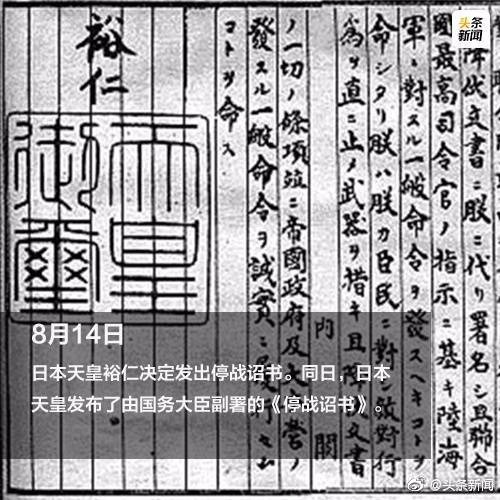 头条
新闻
降伏文書ニ朕ニ代リ署名シ且聯合
國最高司令官ノ指示ニ基キ陸海
軍ニ對スル一般命令ヲ發スヘキコトヲ
命シタリ朕ハ朕カ臣民ニ對シ敵對行
為ヲ直ニ止メ武器ヲ措キ且降伏文書
ノ一切ノ條項竝ニ帝國政府及大本營ノ
發スル一般命令ヲ誠實ニ履行セム
コトヲ命ス
内閣
裕仁
天皇
御璽
8月14日
日本天皇裕仁决定发出停战诏书。同日，日本
天皇发布了由国务大臣副署的《停战诏书》。
@头条新闻